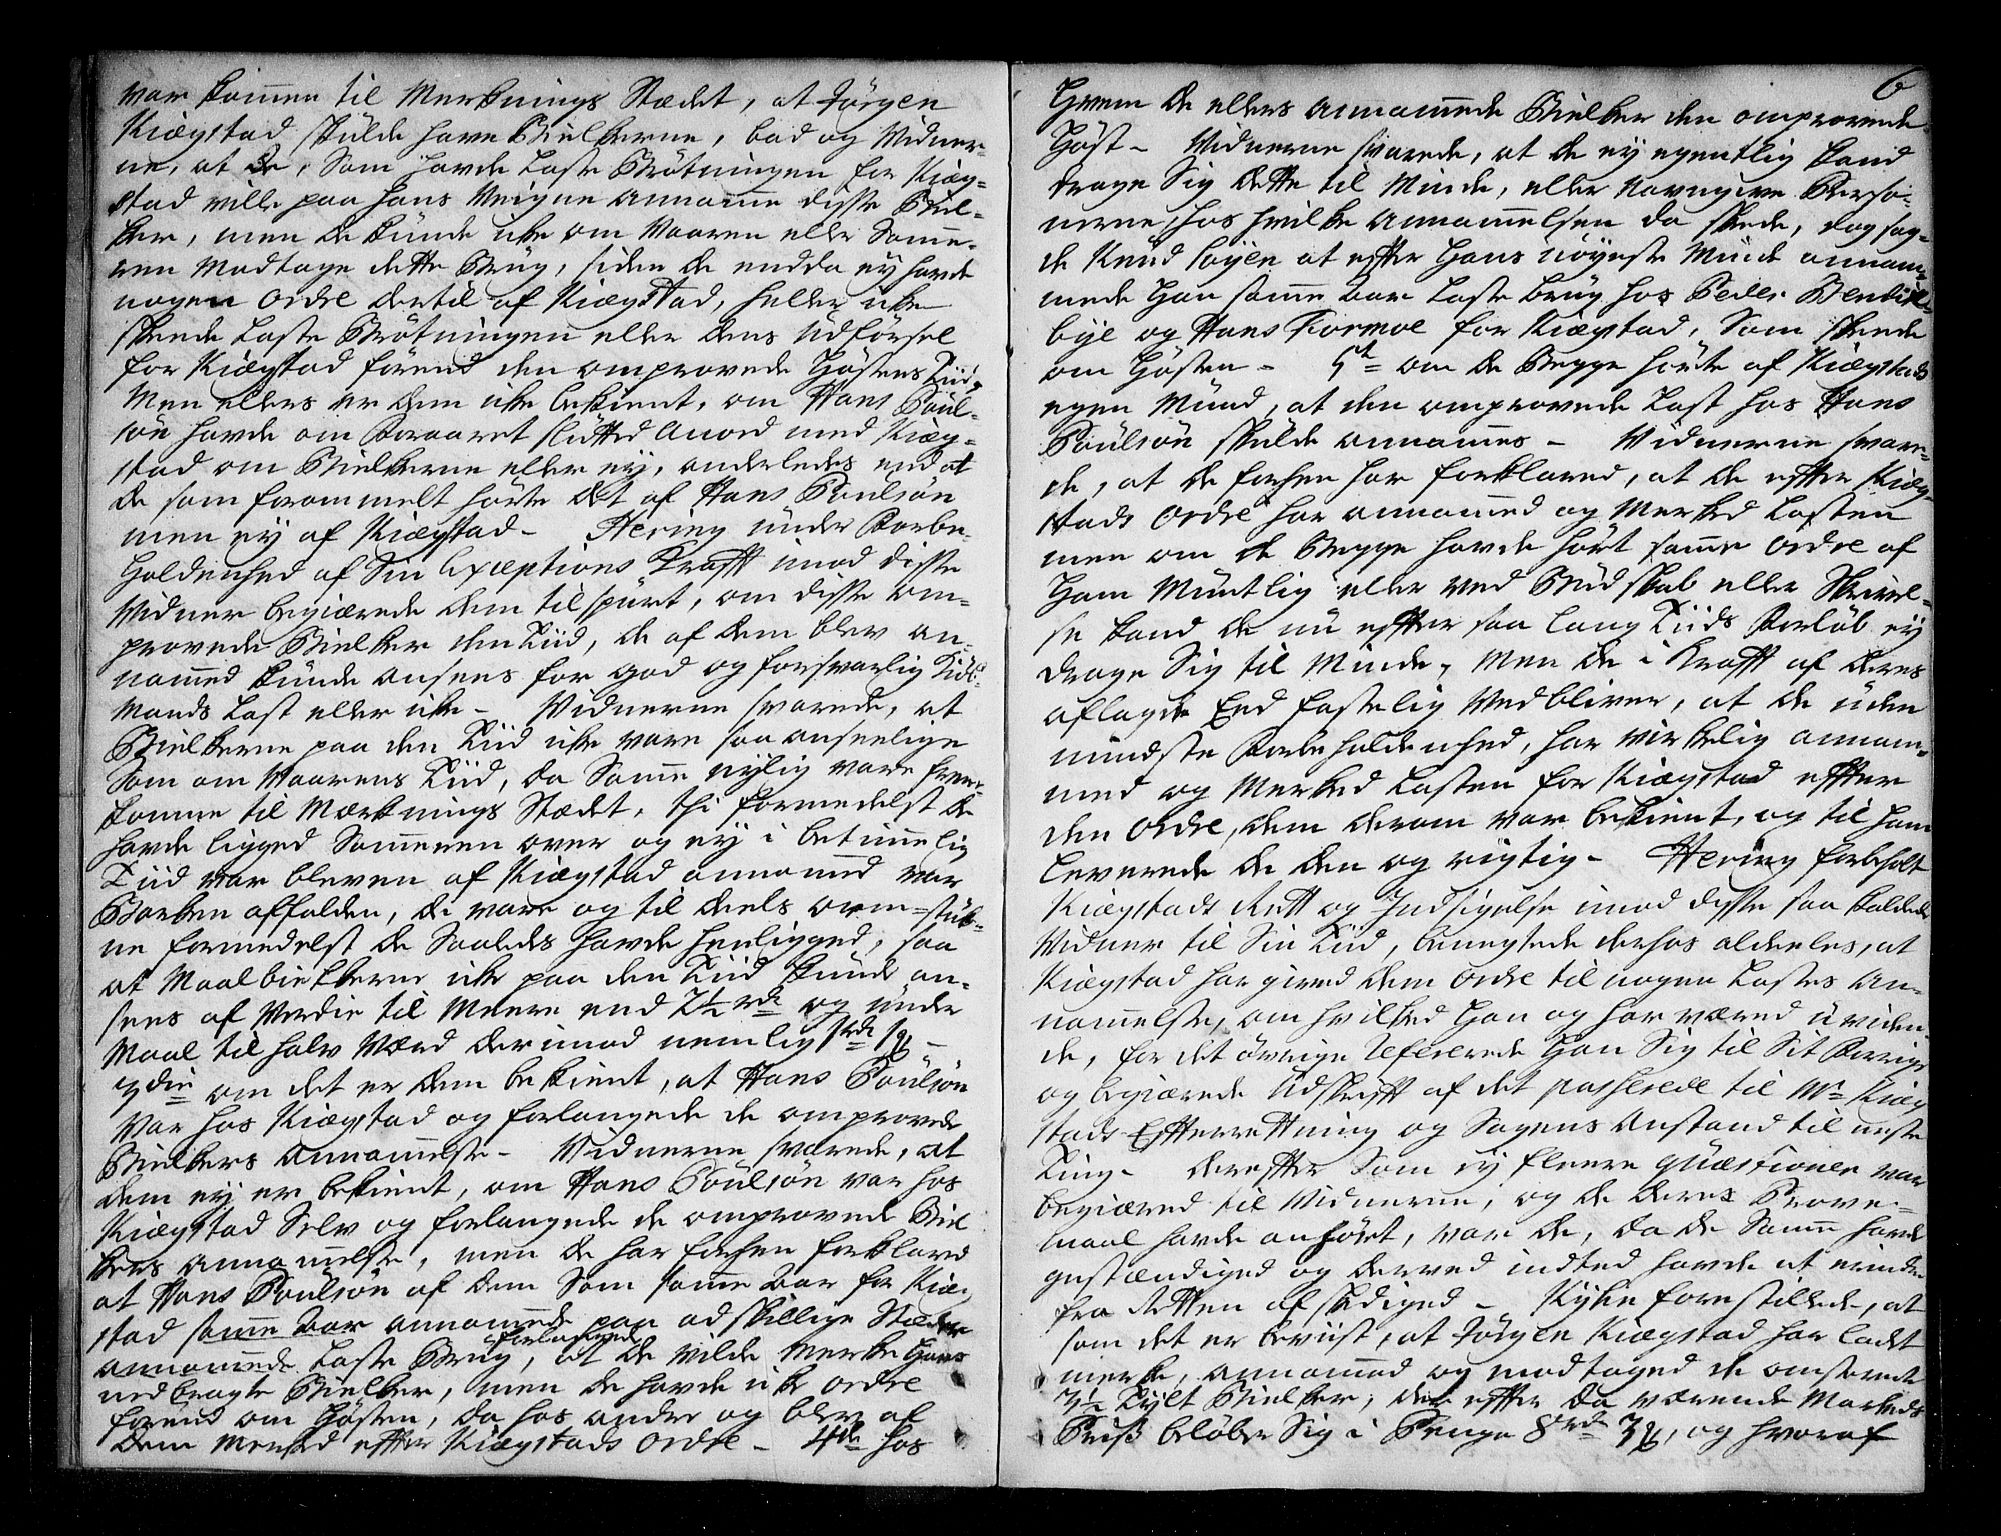 var kommen til Merknings Stædet, at Jörgen
Kiægstad skulde have Bielkerne, bad og Vidner-
ne, at de, Som havde Laste Brötningen for Kiæg-
stad ville paa hans Veigne annamme disse Biel-
ker, men de kunde icke om Vaaren eller Somme-
ren Modtage dette Brug, siden de endda ey havde
nogen Ordre dertil af Kiægstad, heller icke
skeede Laste Brötningen eller dens Udförsel
for Kiægstad förend den omprovede Höstens Tiid,
Men ellers er dem icke bekient, om Hans Poul-
sön havde om Foraaret sluttet Accord med Kiæg-
stad om Bielkerne eller ey, anderledes end at
de som forommelt hörte det af Hans Poulsön
men ey af Kiægstad - Hering under Forbe-
holdenhed af Sin Exceptions Krafft imod disse
Vidner begiærede dem tilspurt, om disse om-
provede Bielker den Tiid, de af dem blev an-
nammed kunde ansees for god og forsvarlig Kiöb-
mands Last eller icke - Vidnerne svarede, at
Bielkerne paa den Tiid icke vare saa anseelige
Som om Vaarens Tiid, da Samme nylig vare frem-
komne til Mærknings Stædet, thi formedelst de
havde ligged Sommeren over og ey i betimelig
Tiid var bleven af Kiægstad annammed var
Barken affalden, de vare og til deels
ne formedelst de Saaledes havde henligged, saa
at Maalbielkerne icke paa den Tiid kunde an-
sees af Verdie til Meere end 2½ rd og under
Maal til halv Værd derimod nemlig 1 rd 1
3die om det er dem bekient, at Hans Poulsön
Var hos Kiægstad og forlangede de omprovede
Bielkers Annammelse - Vidnerne svarede, at
dem ey er bekient, om Hans Poulsön var hos
Kiægstad Selv og forlangede de omprovede Biel
kers Annammelse, men de har forhen forklared
at Hans Poulsön af dem Som samme Aar for Kiæg-
stad samme Aar annammede paa adskillige Stæder
annammede Laste Brug, forlanged at de vilde Merke Hans
nedbragte Bielker, men de havde icke Ordre
förend om Hösten, da hos andre og blev af
dem Merked effter Kiægstads Ordre - 4de hos
6
Hvem de ellers annammede Bielker den omprovede
Höst - Vidnerne svarede, at de ey egentlig kand
drage Sig dette til Minde, eller Navngive Perso-
nerne, hos hvilke Annammelsen da skeede, dog sag-
de Knud at effter Hans nöyeste Minde annam-
mede Han samme Aar Laste Brug hos Peder Bendix-
bye og Hans Formoe for Kiægstad, Som skeede
om Hösten - 5te om de Begge hörte af Kiægstads
egen Mund, at den omprovede Last hos Hans
Poulsön skulde annammes - Vidnerne svare-
de, at de forhen har forklared, at de effter Kiæg-
stads Ordre har annammed og Merked Lasten
men om de Begge havde hört samme Ordre af
Ham Mundtlig eller ved Budskab eller Skrivel-
se kand de nu effter saa lang Tiids Forlöb ey
drage Sig til Minde, Men de i Krafft af deres
aflagde Eed fastelig Vedbliver, at de uden
mindste Forbeholdenhed, har virkelig annam-
med og Merked Lasten for Kiægstad effter
den Ordre, dem derom var bekient, og til ham
leverede de den og rigtig - Hering forbeholt
Kiægstads Rett og Indsigelse imod disse saa kaldede
Vidner til Sin Tiid, benegtede derhos aldeles, at
Kiægstad har gived dem Ordre til nogen Lastes An-
nammelse, om hvilked Han og har været uviden-
de, for det övrige refererede Han Sig til Sit Forrige
og begiærede Udskrifft af det passerede til Mr Kiæg
stads Efterrettning og Sagens Anstand til neste
Ting - dereffter Som ey fleere Quæstioner var
begiæred til Vidnerne, og de deres Prove-
maal havde anhört, var de, da de Samme havde
gestændiged og derved indted havde at erindre
fra Retten afskediged - Ryhn forestillede, at
som det er beviist, at Jörgen Kiægstad har ladet
merke, annammed og modtaged de omstevnte
7½ Tylt Bielker, der effter da værende Markeds
Priss belöber Sig i Penge 8 rd 3, og hvoraf